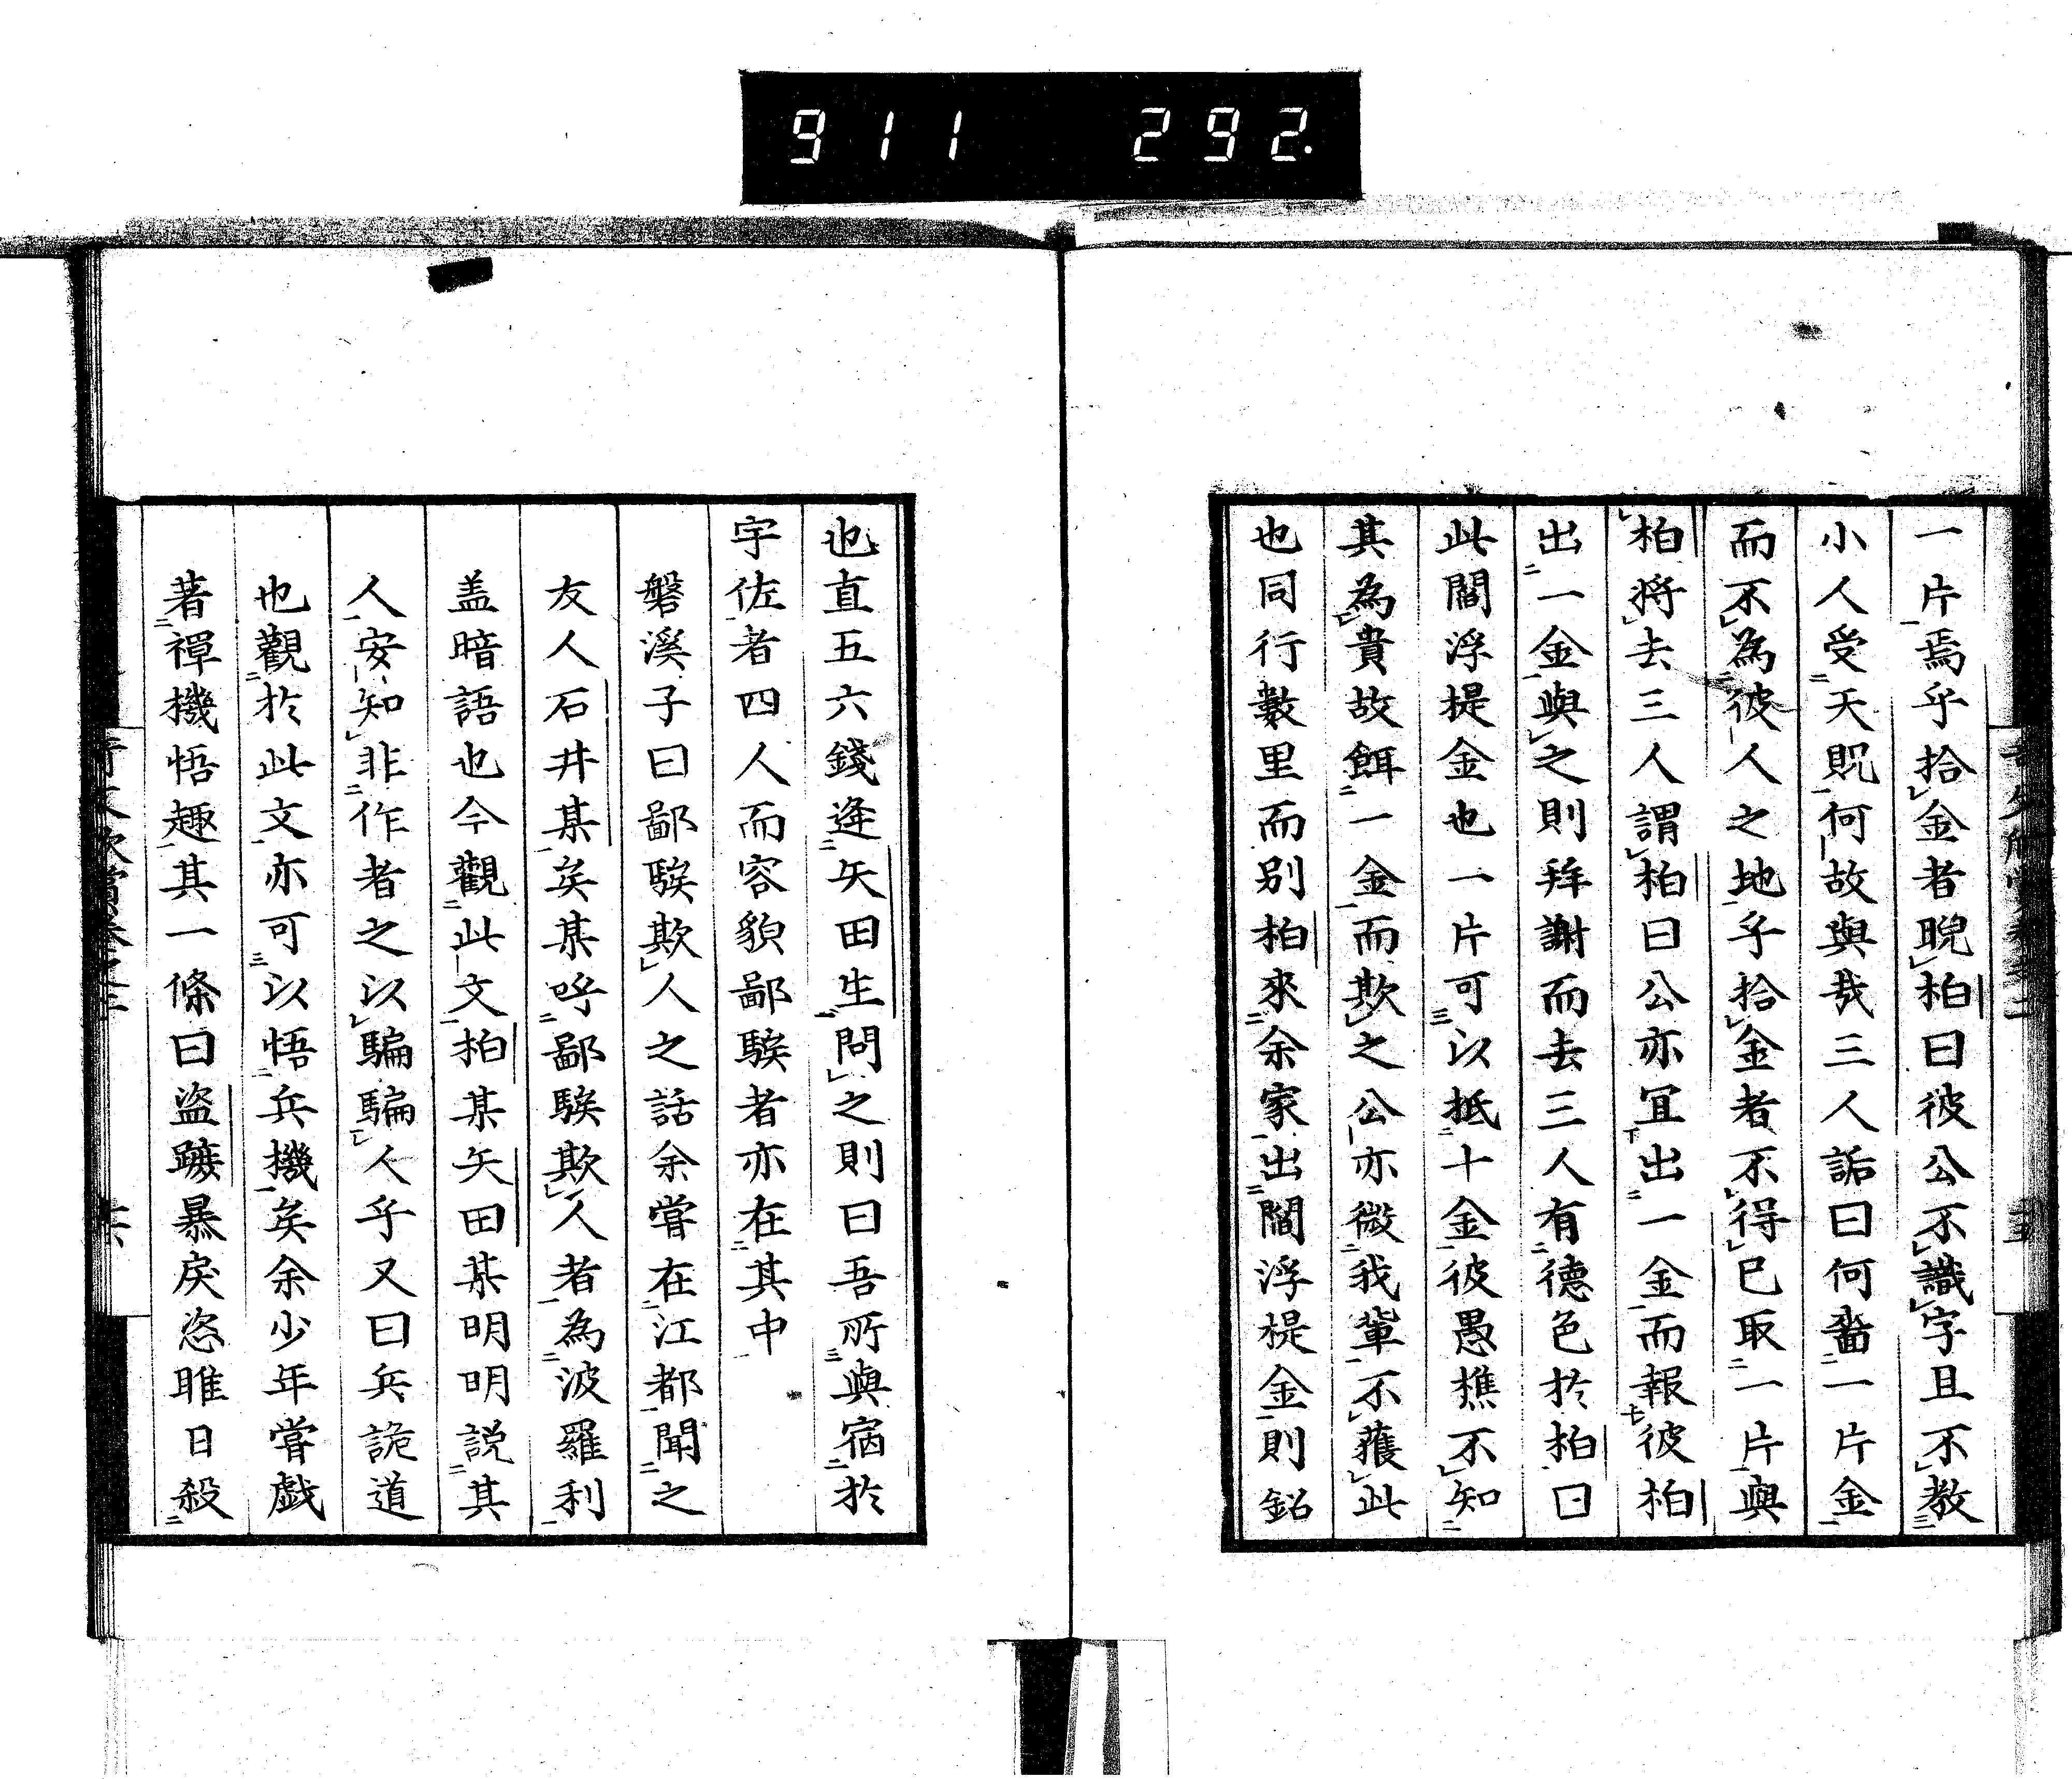 911 292.
一片焉乎拾金者睨柏曰彼公不識字且不教
小人受天貺何故與哉三人詬曰何嗇一片金
而不為彼人之地乎拾金者不得已取一片與
柏將去三人謂柏曰公亦宜出一金而報彼柏
出一金與之則拜謝而去三人有德色於柏曰
此閻浮提金也一片可以抵十金彼愚樵不知
其為貴故餌一金而欺之公亦微我輩不獲此
也同行數里而别柏來余家出閻浮提金則鉛
也直五六錢逢矢田生問之則曰吾所與宿於
宇佐者四人而容貌鄙騃者亦在其中
磐溪子曰鄙騃欺人之話余嘗在江都聞之
友人石井某矣某呼鄙騃欺人者為波羅利
盖暗語也今觀此文柏某矢田某明明説其
人安知非作者之以騙騙人乎又曰兵詭道
也觀於此文亦可以悟兵機矣余少年嘗戯
著禪機悟趣其一條曰盗蹠暴戻恣睢日殺